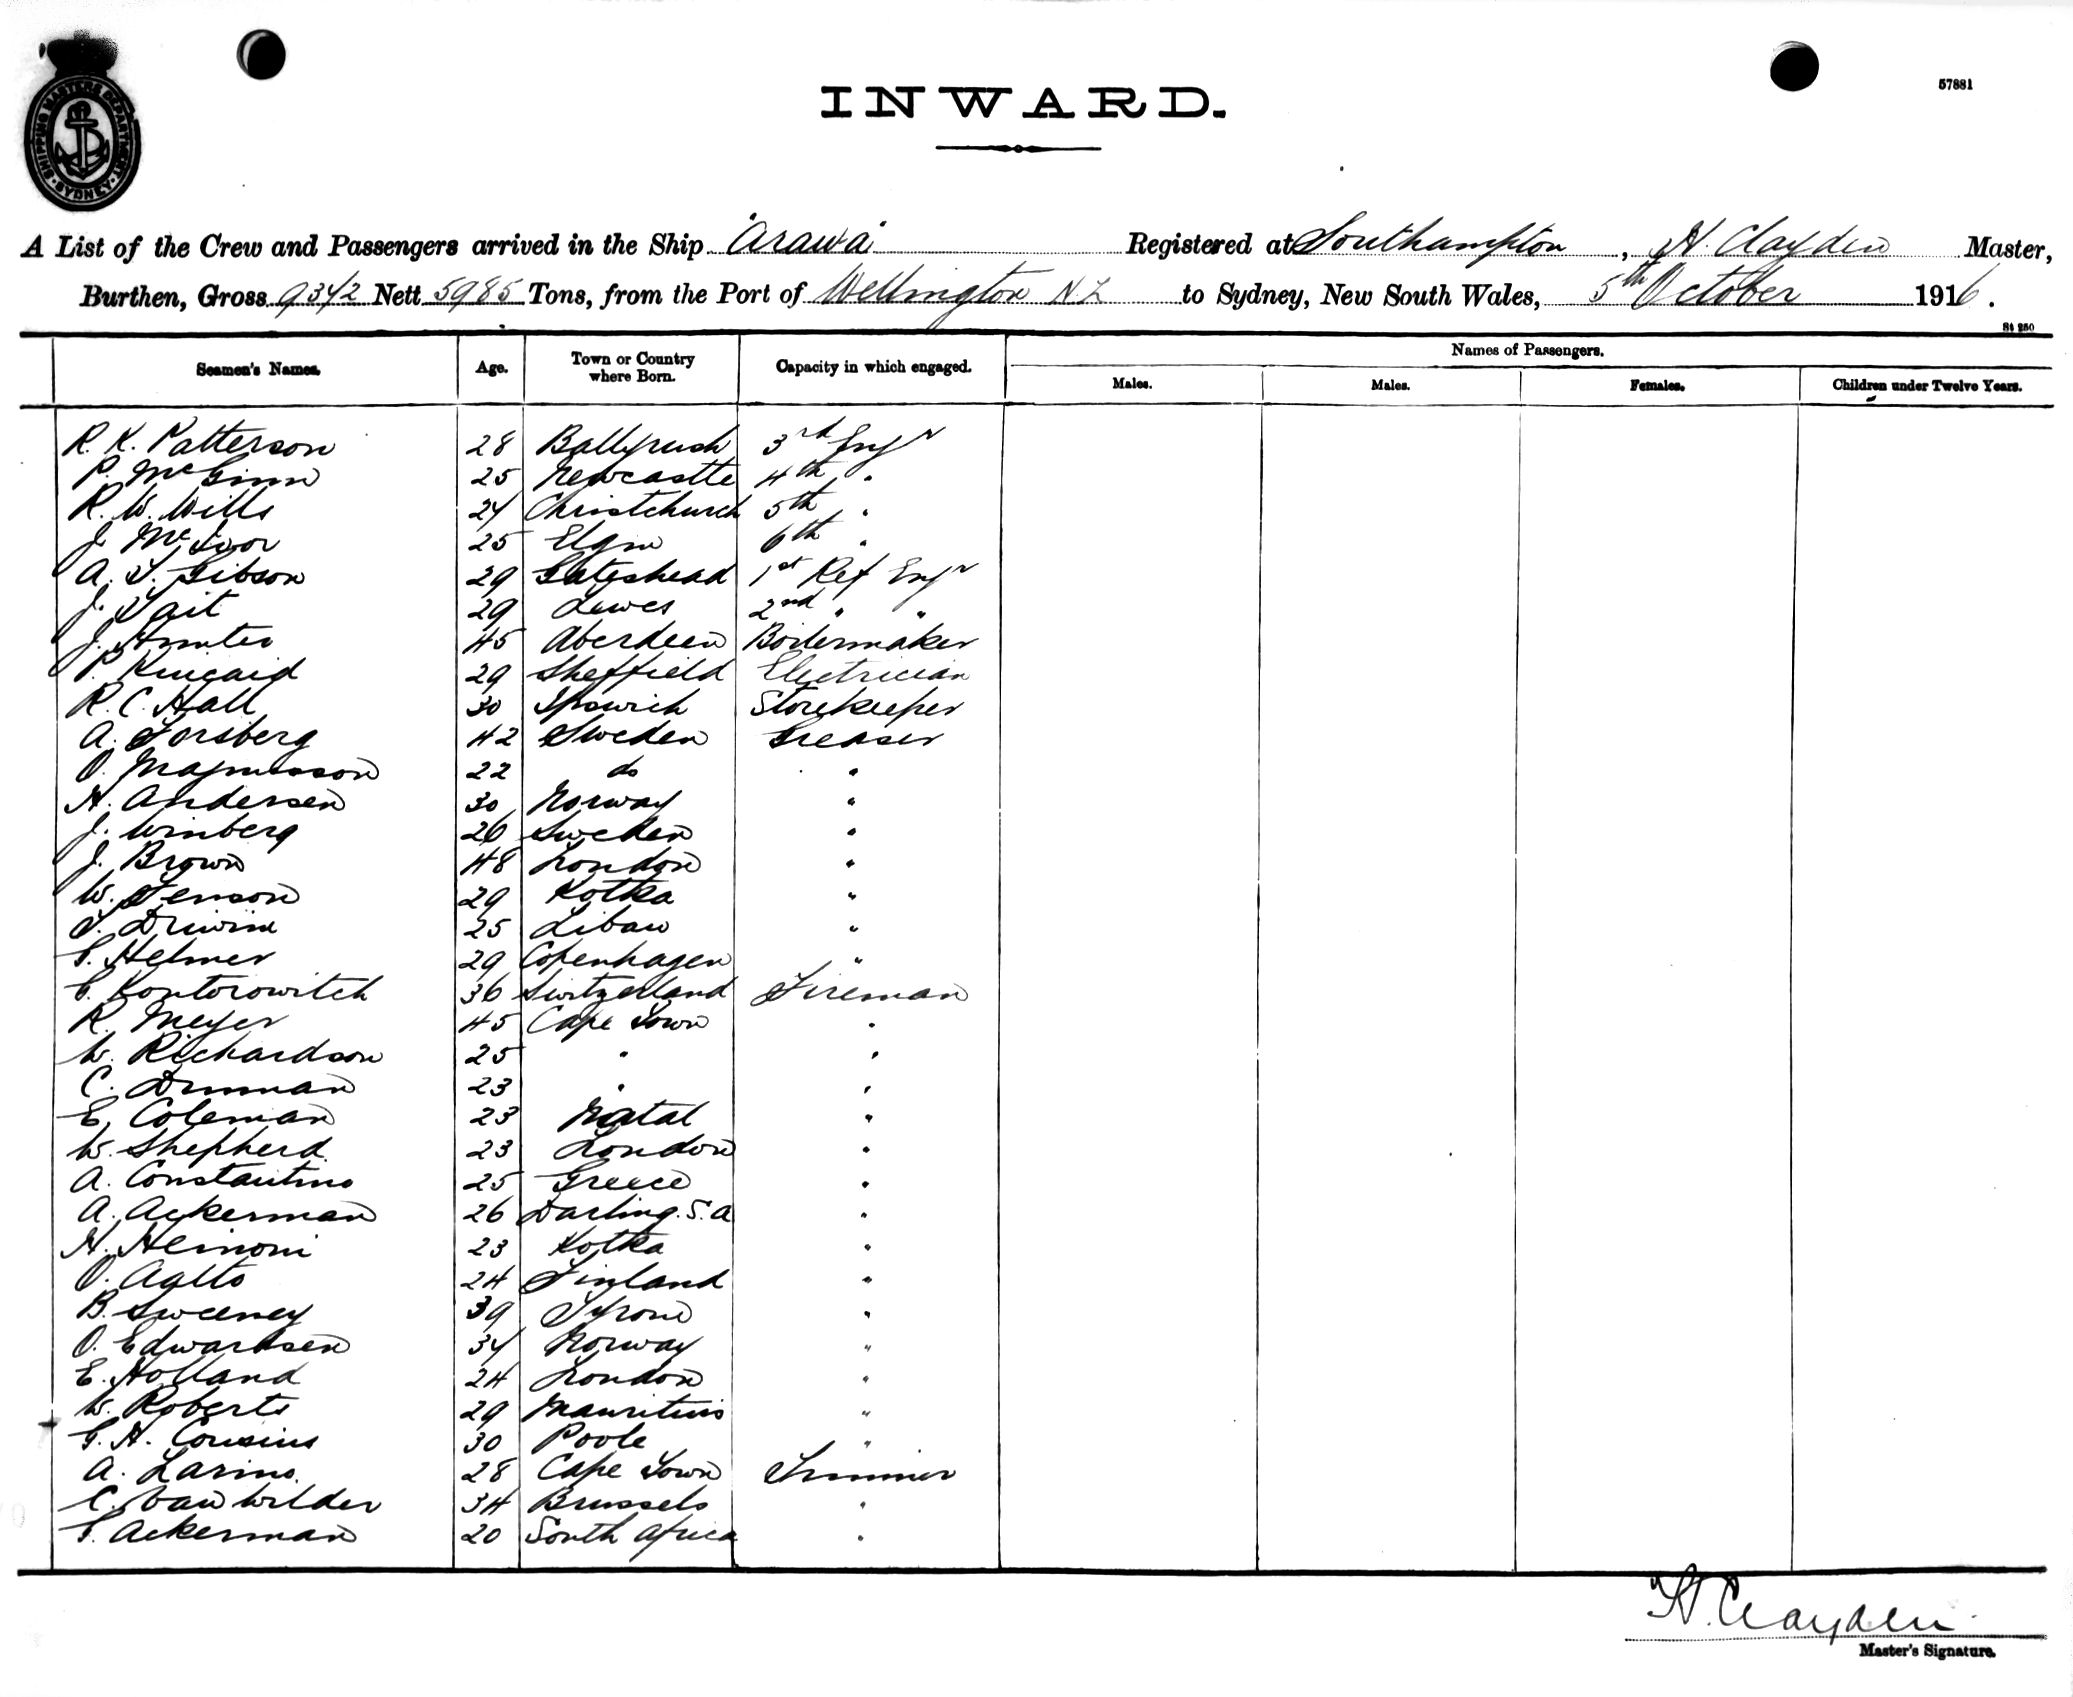 SHIPPING MASTERS DEPARTMENT
SYDNEY
57881
INWARD.
A List of the Crew and Passengers arrived in the Ship "Arawa" Registered at Southampton, H. Clayden Master,
Burthen, Gross 9342 Nett 5985 Tons, from the Port of Wellington NZ to Sydney, New South Wales, 5th October 1916.
St 250
Seamen's Names. Age. Town or Country where Born. Capacity in which engaged. Names of Passengers.
Males. Males. Females. Children under Twelve Years.
R. K. Patterson 28 Ballyrush 3rd Engr
P. McGinn 25 Newcastle 4th "
R. W. Wills 24 Christchurch 5th "
J. McIvor 25 Elgin 6th "
A. T. Gibson 29 Gateshead 1st Ref Engr
J. Tait 29 Lewes 2nd " "
J. Hunter 45 Aberdeen Boilermaker
P. Kincaid 29 Sheffield Electrician
R. C. Hall 30 Ipswich Storekeeper
A. Forsberg 42 Sweden Greaser
O. Magnusson 22 do "
H. Andersen 30 Norway "
J. Winberg 26 Sweden "
J. Brown 48 London "
W. Jenson 29 Kotka "
25 Libau "
G. Helmer 29 Copenhagen "
G. Kontorowitch 36 Switzerland Fireman
R. Meyer 45 Cape Town "
W. Richardson 25 " "
C. Dunman 23 " "
E. Coleman 23 Natal "
W. Shepherd 23 London "
A. Constantino 25 Greece "
A. Ackerman 26 Darling. S. A "
H. Heinoni 23 Kotka "
O. Aalto 24 Finland "
B. Sweeney 39 Tyrone "
O. Edwardsen 34 Norway "
E. Holland 24 London "
W. Roberts 29 Mauritius "
G. H. Cousins 30 Poole "
A. Larino 28 Cape Town Trimmer
C. Van Wilder 34 Brussels "
G. Ackerman 20 South Africa "
H. Clayden
Master's Signature.